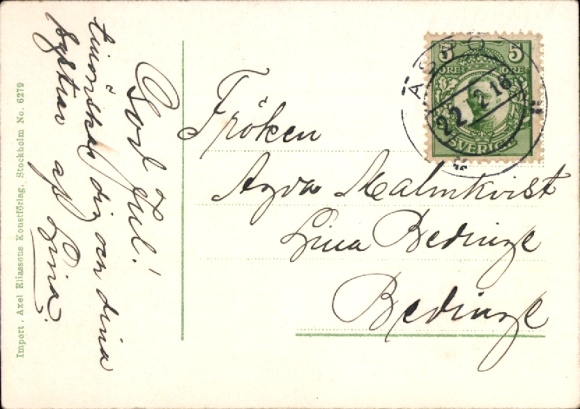 God Jul!
tillönskas dig och dina
systrar af Lina.
Fröken
Agda Malmkvist
Lina Bedinge
Bedinge
5 5
ÖRE ÖRE
SVERIGE
22.12.18
Import. Axel Eliassons Konstförlag, Stockholm No. 6279